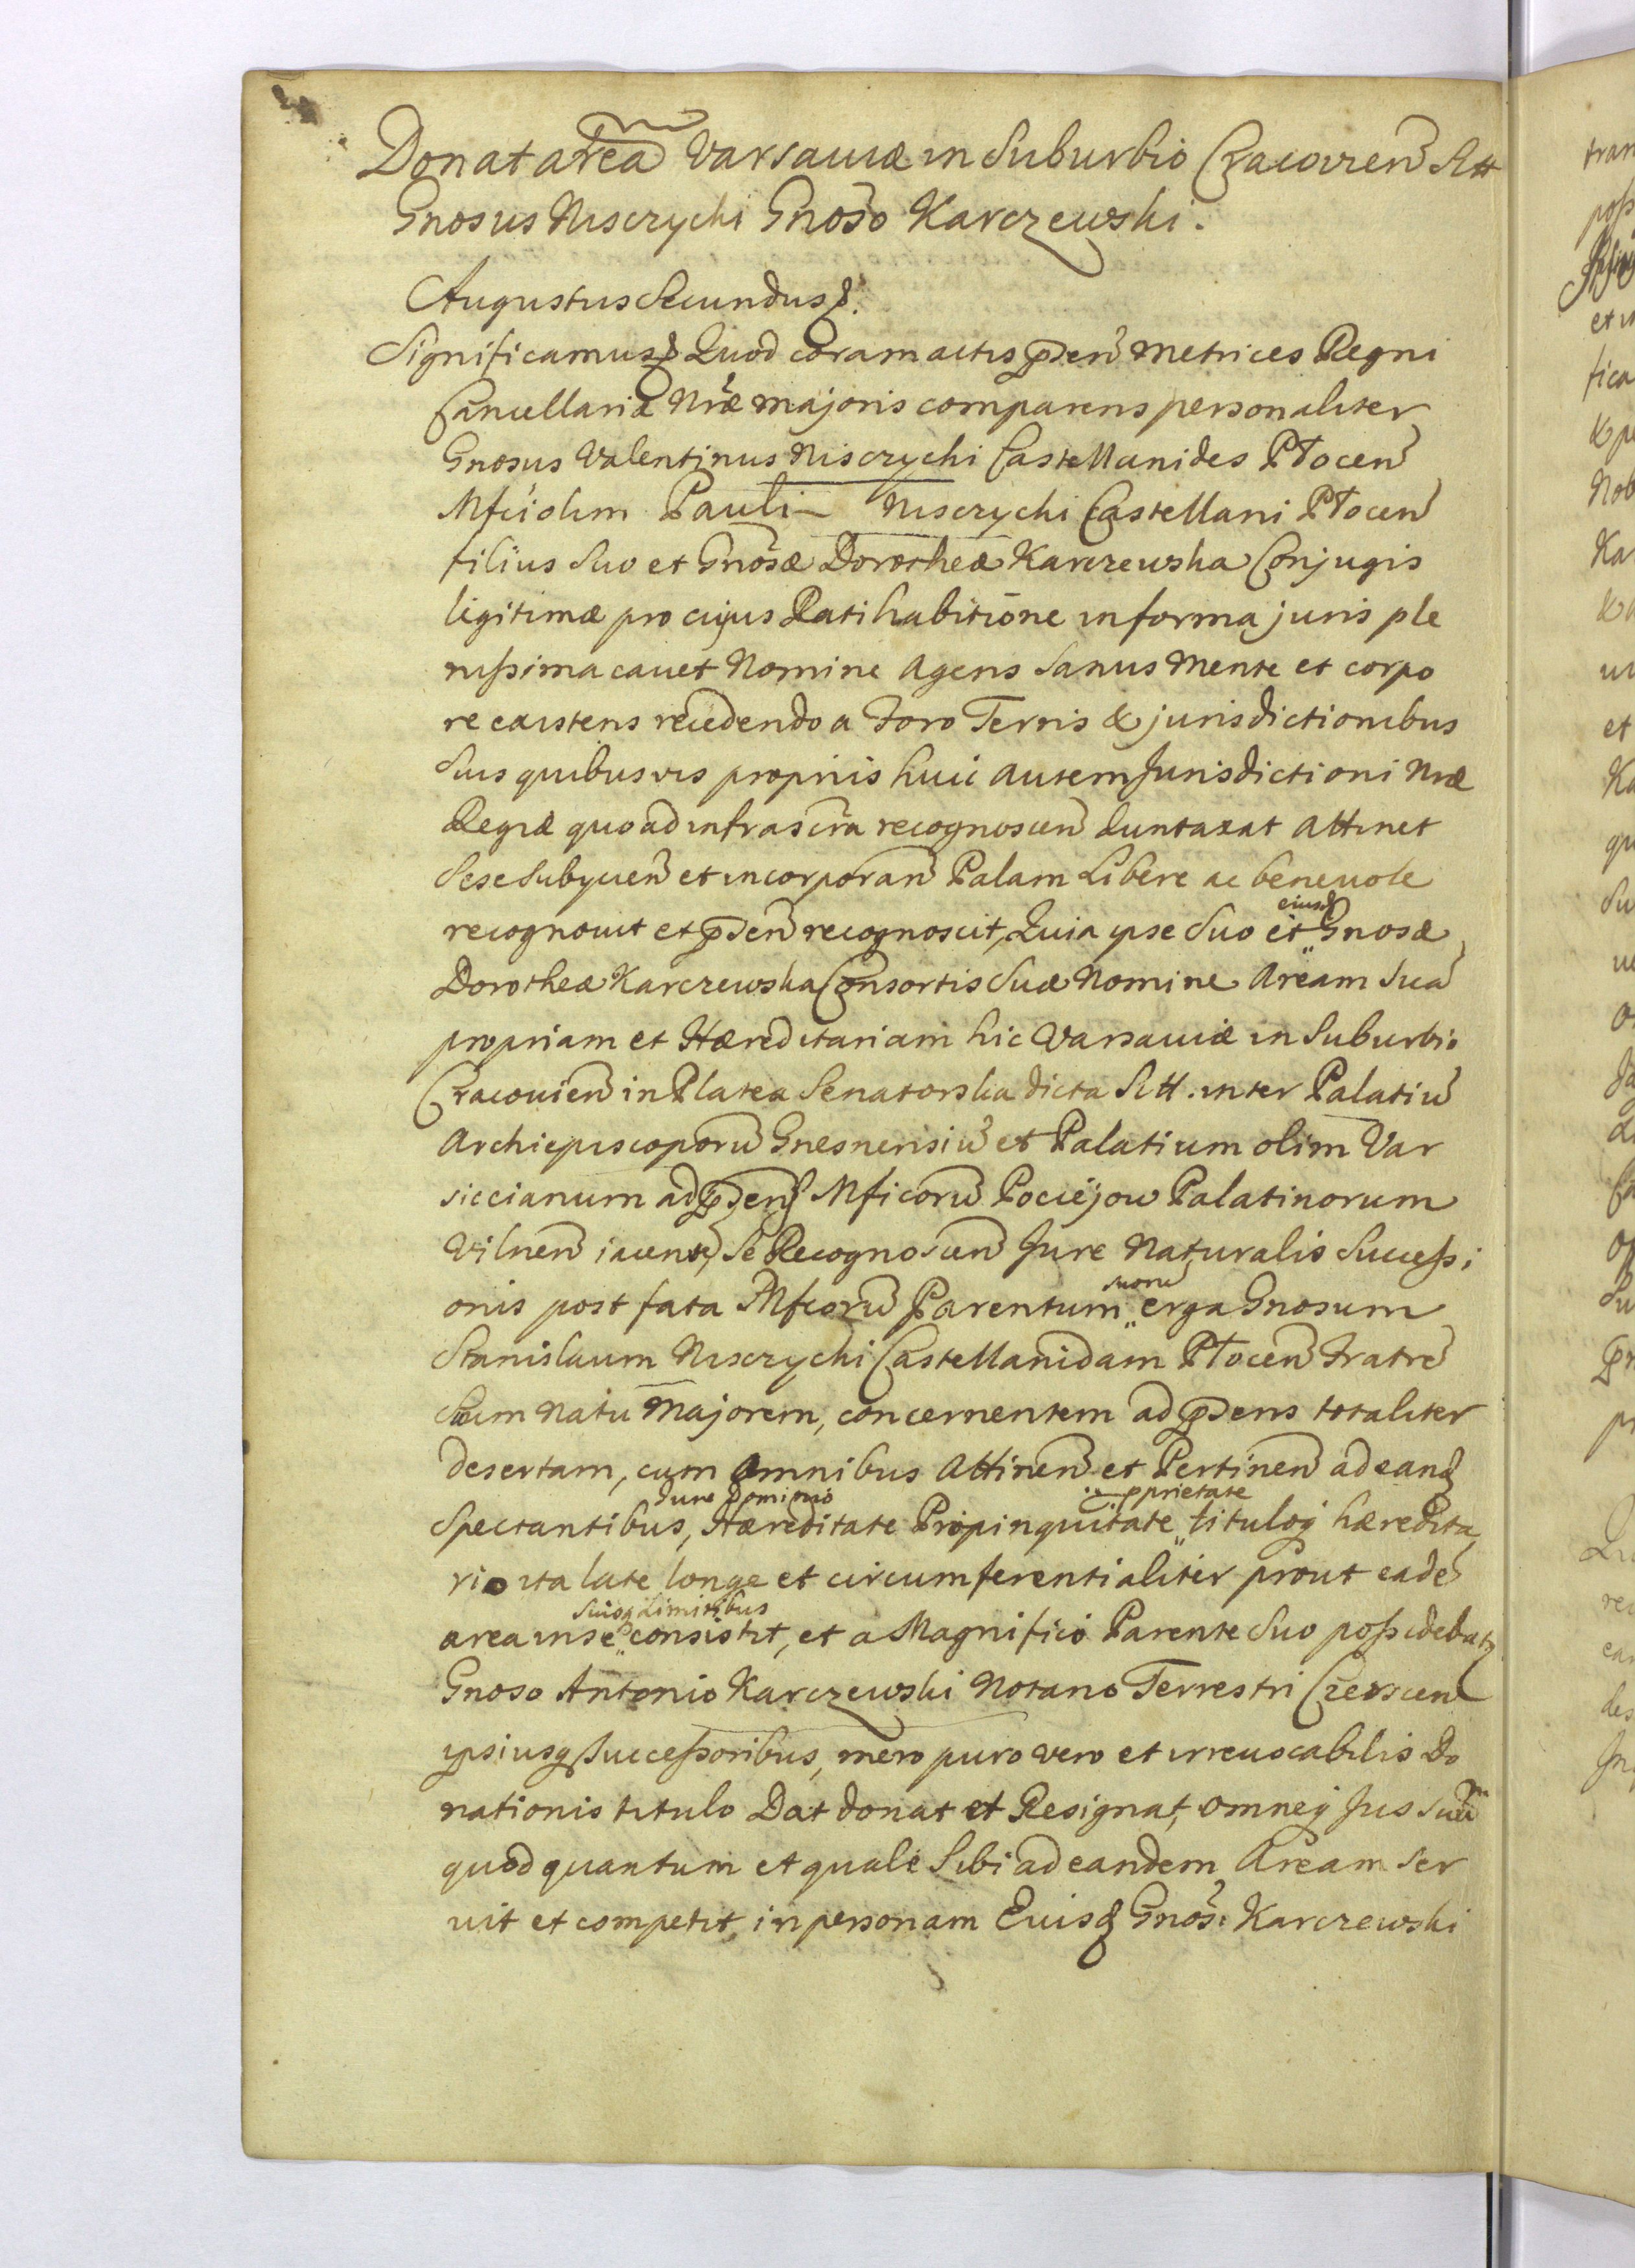 Donat area Varsaviæ in Suburbio Cracovien Sitt
Gnosus Niscrychi Gnoso Karczewski.
Augustus Secundus &.
Significamus & Quod coram actis pnden Metrices Regni
Cancellariæ Nræ majoris comparens personaliter
Gnosus Valentinus Niscrychi Castellanides Plocen
Mfici olim Pauli Niscrychi Castellani Plocen
filius Suo et Gnosæ Dorotheæ Karczewska Conjugis
legitimæ pro cujus Ratihabitione in forma juris ple
nissima cavet Nomine Agens Sanus Mente et corpo
re existens recedendo a Foro Terris & jurisdictionibus
Suis quibusvis propriis huic autem Jurisdictioni Nræ
Regiæ quo ad infrascra recognoscen duntaxat Attinet
Sese Subjicien et incorporan Palam Libere ac benevole
recognovit et pnden recognoscit, Quia ipse Suo et eiusd Gnosæ
Dorotheæ Karczewska Consortis Suæ Nomine Aream Sua
propriam et Hæreditariam hic Varsaviæ in Suburbio
Cracovien in Platea Senatorska dicta Sitt. inter Palatiu
Archiepiscoporu Gnesnensiu et Palatium olim Var
siccianum ad pndens Mficoru Pociejow Palatinorum
Vilnen jacen, Se Recognoscen Jure Naturalis Successi
onis post fata Mficoru Parentum suoru erga Gnosum
Stanislaum Niscrychi Castellanidam Plocen Fratre
Suum Natu Majorem, concernentem ad pndens totaliter
desertam, cum Omnibus Attinen et Pertinen ad eand
Spectantibus, Jure Dominio Hæreditate Propinquitate pprietate tituloq hæredita
rio ita late longe et circumferentialiter prout eade
area in se suisq Limitibus consistit, et a Magnifico Parente Suo possidebat
Gnoso Antonio Karczewski Notario Terrestri Czerscen
ipsiusq Successoribus, mero puro vero et irrevocabilis Do
nationis titulo Dat donat et Resignat, omneq Jus Suum
quod quantum et quale Sibi ad eandem Aream Ser
vit et competit, in personam Eiusd Gnosi Karczewski